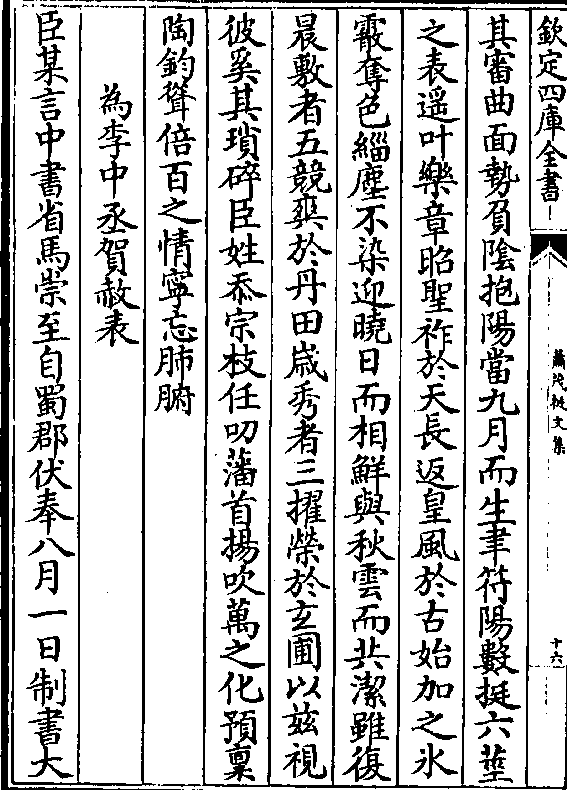 欽定四庫全書
蕭茂挺文集
十六
其審曲面勢負陰抱陽當九月而生聿符陽數挺六莖
之表遥叶樂章昭聖祚於天長返皇風於古始加之氷
霰奪色緇塵不染迎曉日而相鮮與秋雲而共潔雖復
晨敷者五競爽於丹田嵗秀者三擢榮於玄圃以兹視
彼奚其瑣碎臣姓忝宗枝任叨藩首揚吹萬之化預稟
陶鈞聳倍百之情寧忘肺腑
為李中丞賀赦表
臣某言中書省馬崇至自蜀郡伏奉八月一日制書大